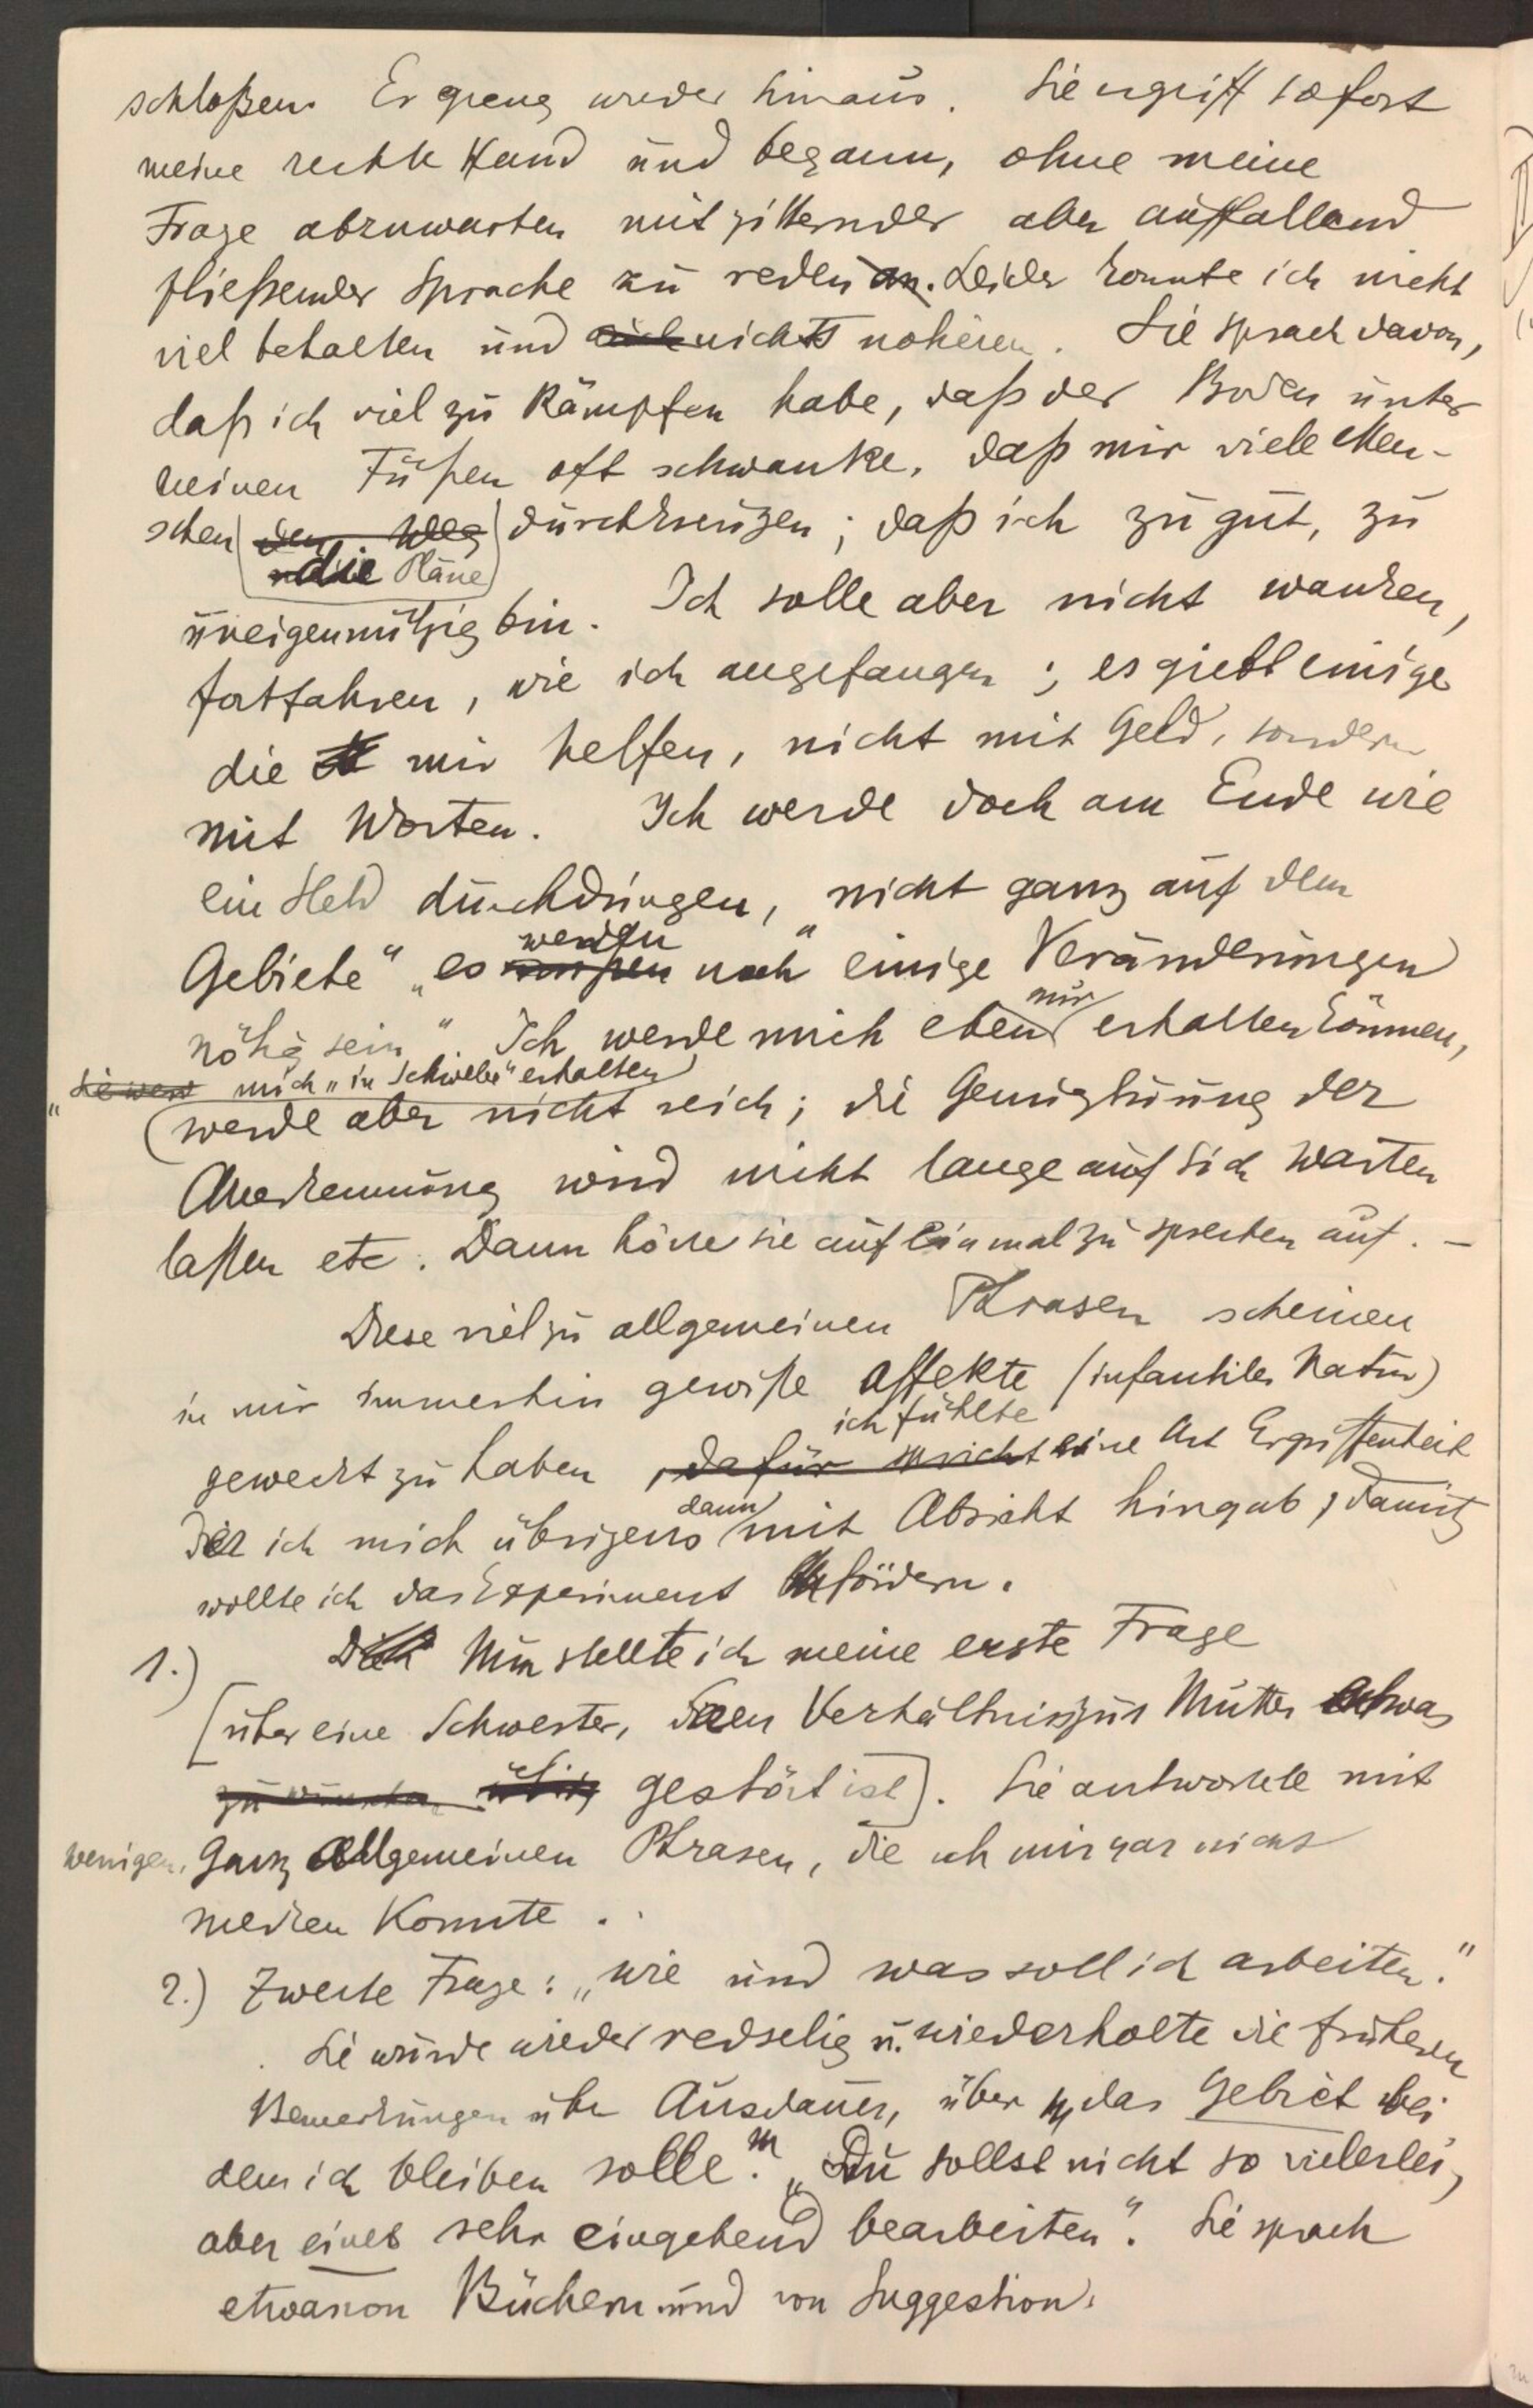 schloßen. Er gieng wieder hinaus. Sie ergriff sofort
meine rechte Hand und begann, ohne meine
Frage abzuwarten mit zitternder aber auffallend
fließender Sprache zu reden an. Leider konnte ich nicht
viel behalten und auch nichts notieren. Sie sprach davon,
daß ich viel zu kämpfen habe, daß der Boden unter
meinen Füßen oft schwanke, daß mir viele Men-
schen den Weg durchkreuzen; daß ich zu gut, zu
die Pläne
uneigennützig bin. Ich solle aber nicht wanken,
fortfahren, wie ich angefangen; es giebt einige
die mir helfen, nicht mit Geld, sondern
mit Worten. Ich werde doch am Ende wie
ein Held durchdringen, "nicht ganz auf dem
werden
Gebiete" "es müssen noch einige Veränderungen
nur
nötig sein" Ich werde mich eben erhalten können,
"die werd mich "in Schwebe" erhalten
werde aber nicht reich; die Genugtuung der
Anerkennung wird nicht lange auf sich warten
laßen etc. Dann hörte sie auf einmal zu sprechen auf. –
Diese viel zu allgemeinen Phrasen scheinen
in mir immerhin gewiße Affekte (infantiler Natur)
ich fühlte
geweckt zu haben, dafür spricht eine Art Ergriffenheit
dann
der ich mich übrigens mit Absicht hingab, damit
wollte ich das Experiment fördern.
1.) Nun stellte ich meine erste Frage
[über eine Schwester, deren Verhältnis zur Mutter etwas
zu gestört ist]. Sie antwortete mit
wenigen, ganz allgemeinen Phrasen, die ich mir gar nicht
merken konnte.
2.) Zweite Frage: "wie und was soll ich arbeiten."
Sie wurde wieder redselig u. wiederholte die frühern
Bemerkungen über Ausdauer, über das Gebiet bei
dem ich bleiben solle. "Du sollst nicht so vielerlei,
aber eines sehr eingehend bearbeiten". Sie sprach
etwas von Büchern und von Suggestion.